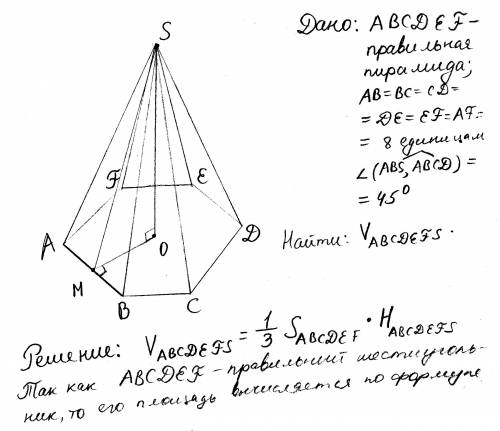 S
Дано: ABCDEF-
правильная
пирамида;
AB=BC=CD=
=DE=EF=AF=
= 8 единицам
∠(ABS, ABCD)=
= 45°
F
E
A
O
D
Найти: V ABCDEFS.
M
B
C
Решение: V ABCDEFS = 1/3 S ABCDEF · H ABCDEFS
Так как ABCDEF - правильний шестиуголь-
ник, то его площадь вычисляется по формуле